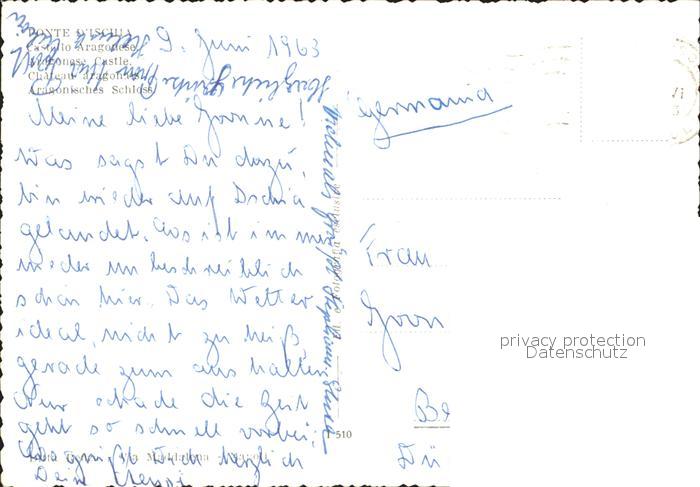 PONTE D'ISCHIA
Castello Aragonese
Aragonese Castle
Château aragonais
Aragonisches Schloss
9. Juni 1963
Herzliche Grüße
Meine liebe
Was sagst Du dazu,
bin wieder auf Ischia
gelandet. Es ist immer
wieder unbeschreiblich
schön hier. Das Wetter
ideal, nicht zu heiß,
gerade zum aushalten
Nur schade die Zeit
geht so schnell vorbei,
Es grüßt Dich herzlich
Dein
grüßt Stephanie
Germania
Frau
Be
Dü
1-510
privacy protection
Datenschutz